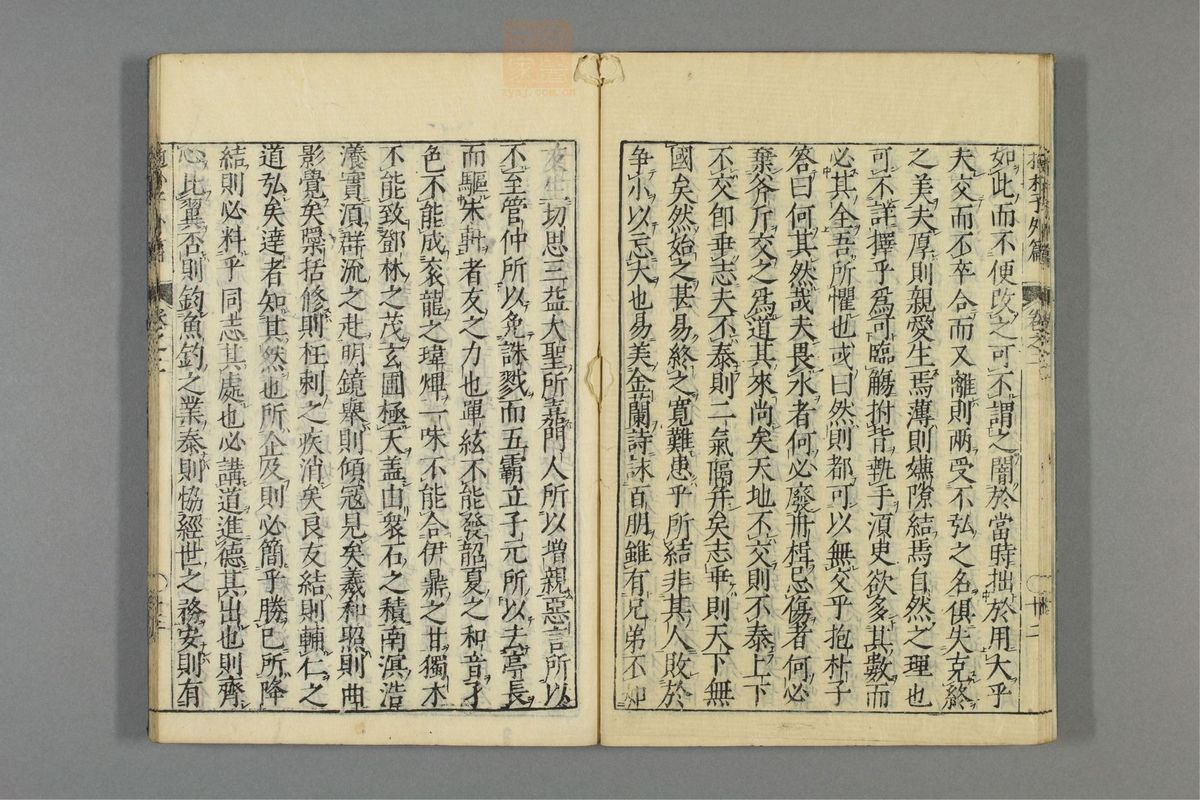 抱朴子外篇 卷之二 十二
如此而不便改之可不謂之闇於當時拙於用大乎
夫交而不卒合而又離則兩受不弘之名俱失克終
之美夫厚則親愛生焉薄則嫌隙結焉自然之理也
可不詳擇乎爲可臨觴拊背執手須臾欲多其數而
必其全吾所懼也或曰然則都可以無交乎抱朴子
答曰何其然哉夫畏水者何必廢舟楫忌傷者何必
棄斧斤交之爲道其來尚矣天地不交則不泰上下
不交卽乖志夫不泰則二氣隔并矣志乖則天下無
國矣然始之甚易終之寬難患乎所結非其人敗於
争小以忘大也易美金蘭詩詠百朋雖有兄弟不如
友生切思三益大聖所嘉門人所以增親惡言所以
不至管仲所以免誅戮而五霸立子元所以去亭長
而驅朱軒者友之力也單絃不能發韶夏之和音孑
色不能成衮龍之瑋燁一味不能合伊鼎之甘獨木
不能致鄧林之茂玄圃極天盖由衆石之積南溟浩
瀁實須群流之赴明鏡舉則傾冠見矣羲和照則曲
影覺矣檃括修則枉刺之疾消矣良友結則輔仁之
道弘矣達者知其然也所企及則必簡乎勝己所降
結則必料乎同志其處也必講道進德其出也則齊
心比翼否則鈞魚釣之業泰則恊經世之務安則有
卷之二 十三
zysj.com.cn